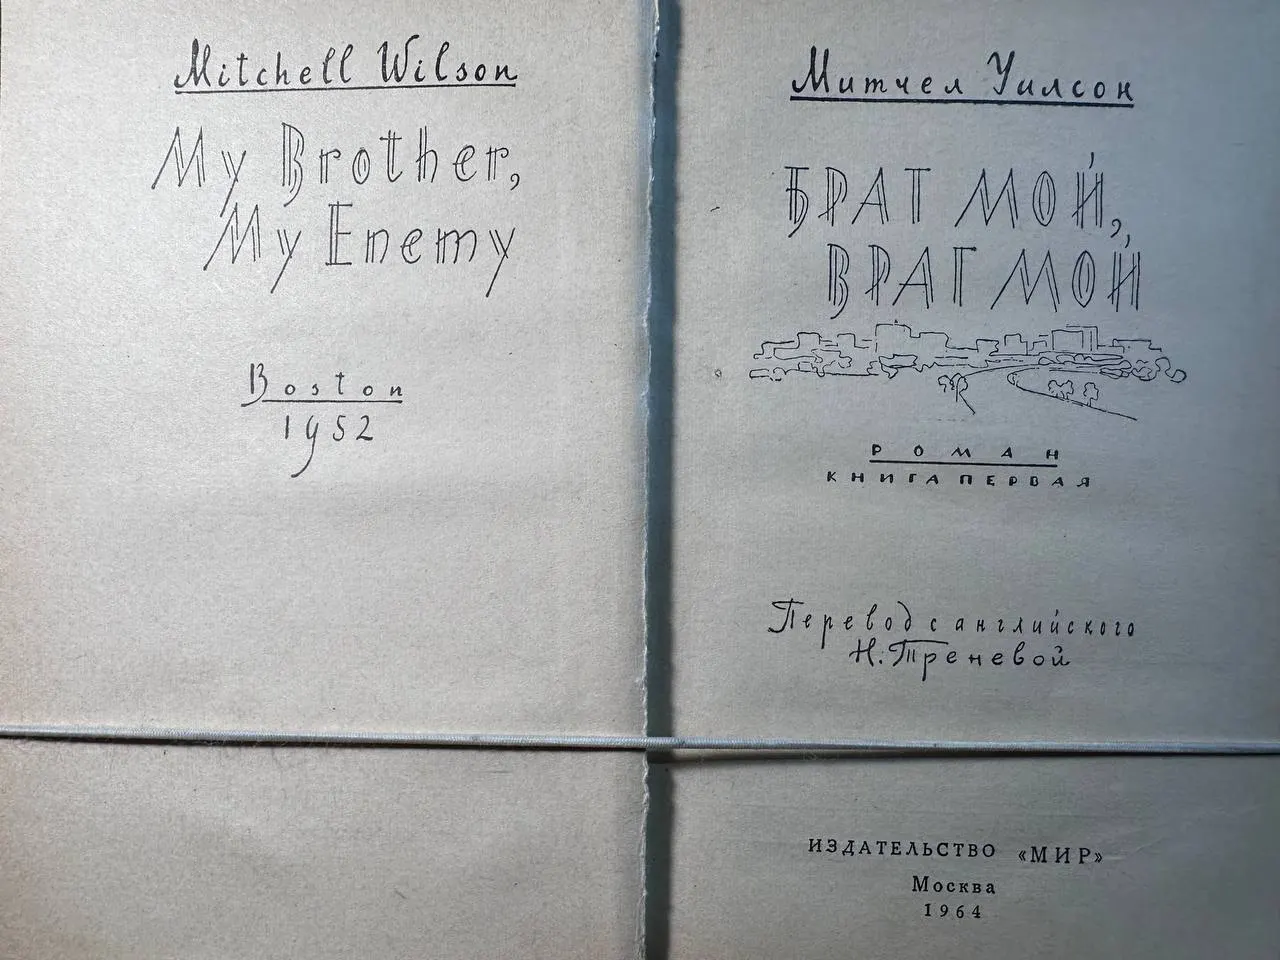 Mitchell Wilson
My Brother,
My Enemy
Boston
1952
Митчел Уилсон
БРАТ МОЙ,
ВРАГ МОЙ
РОМАН
КНИГА ПЕРВАЯ
Перевод с английского
Н. Треневой
ИЗДАТЕЛЬСТВО «МИР»
Москва
1964